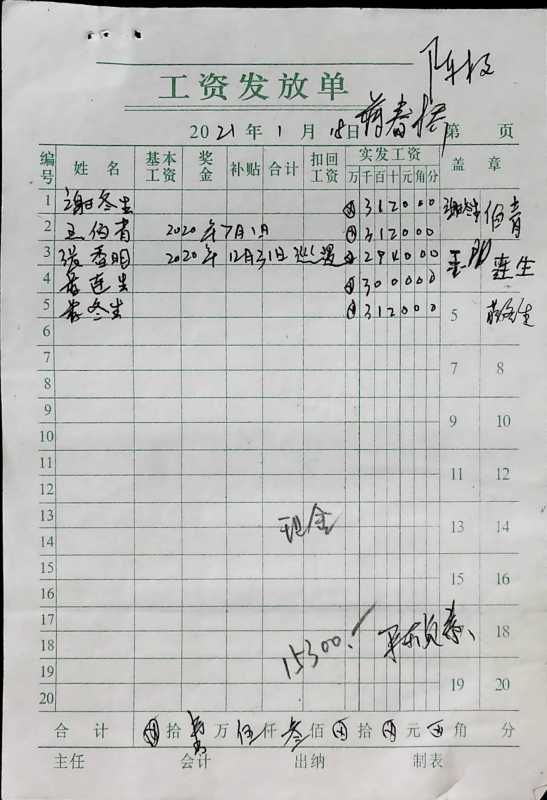 工资发放单
2021年1月18日 蒋春 第 页
编号 姓名 基本工资 奖金 补贴 合计 扣回工资 实发工资 盖章
万千百十元角分
1 谢冬生 312000 谢冬生
2 王伯青 2020年7月1日 312000 伯青
3 张香明 2020年12月31日 294000
4 连生 300000 连生
5 冬生 312000 5
6
7 7 8
8
9 9 10
10
11 11 12
12
13 现金 13 14
14
15 15 16
16
17
18 15300. 18
19 19 20
20
合计 拾 壹万 伍仟 叁佰 拾 元 角 分
主任 会计 出纳 制表